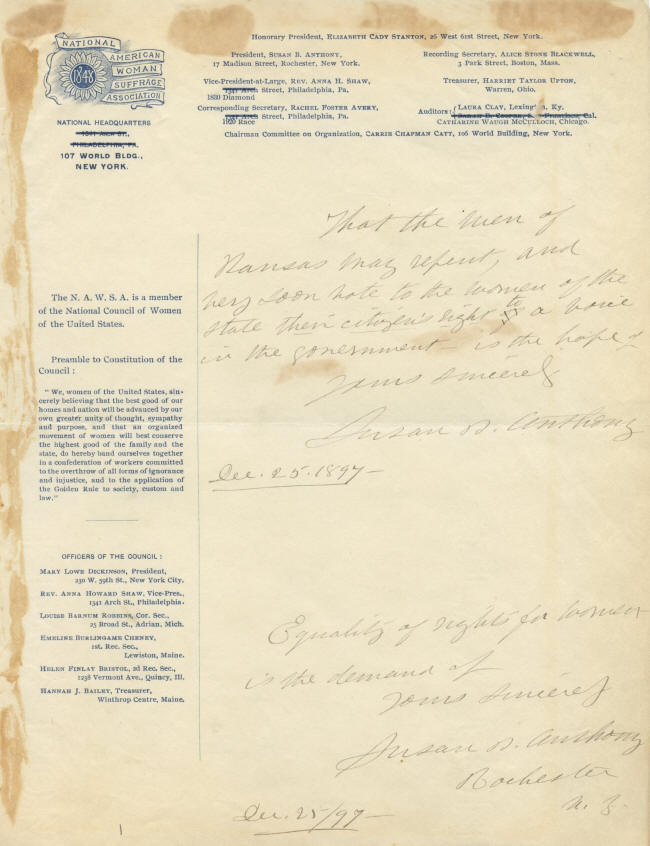 NATIONAL
AMERICAN
WOMAN
SUFFRAGE
ASSOCIATION
1848
NATIONAL HEADQUARTERS
1341 ARCH ST.,
PHILADELPHIA, PA.
107 WORLD BLDG.,
NEW YORK.
Honorary President, ELIZABETH CADY STANTON, 26 West 61st Street, New York.
President, SUSAN B. ANTHONY,
17 Madison Street, Rochester, New York.
Vice-President-at-Large, REV. ANNA H. SHAW,
1341 Arch Street, Philadelphia, Pa.
1830 Diamond
Corresponding Secretary, RACHEL FOSTER AVERY,
1341 Arch Street, Philadelphia, Pa.
1920 Race
Recording Secretary, ALICE STONE BLACKWELL,
3 Park Street, Boston, Mass.
Treasurer, HARRIET TAYLOR UPTON,
Warren, Ohio.
Auditors: LAURA CLAY, Lexington, Ky.
Cal.
CATHARINE WAUGH MCCULLOCH, Chicago.
Chairman Committee on Organization, CARRIE CHAPMAN CATT, 106 World Building, New York.
The N. A. W. S. A. is a member
of the National Council of Women
of the United States.
Preamble to Constitution of the
Council :
" We, women of the United States, sin-
cerely believing that the best good of our
homes and nation will be advanced by our
own greater unity of thought, sympathy
and purpose, and that an organized
movement of women will best conserve
the highest good of the family and the
state, do hereby band ourselves together
in a confederation of workers committed
to the overthrow of all forms of ignorance
and injustice, and to the application of
the Golden Rule to society, custom and
law."
OFFICERS OF THE COUNCIL :
MARY LOWE DICKINSON, President,
230 W. 59th St., New York City.
REV. ANNA HOWARD SHAW, Vice-Pres.,
1341 Arch St., Philadelphia.
LOUISE BARNUM ROBBINS, Cor. Sec.,
25 Broad St., Adrian, Mich.
EMELINE BURLINGAME CHENEY,
1st. Rec. Sec.,
Lewiston, Maine.
HELEN FINLAY BRISTOL, 2d Rec. Sec.,
1238 Vermont Ave., Quincy, Ill.
HANNAH J. BAILEY, Treasurer,
Winthrop Centre, Maine.
That the men of
Kansas may repent, and
very soon vote to the women of the
state their citizen's right to a voice
in the government — is the hope of
Yours sincerely
Susan B. Anthony
Dec. 25. 1897 —
Equality of rights for women
is the demand of
Yours sincerely
Susan B. Anthony
Rochester
N. Y.
Dec. 25/97 —